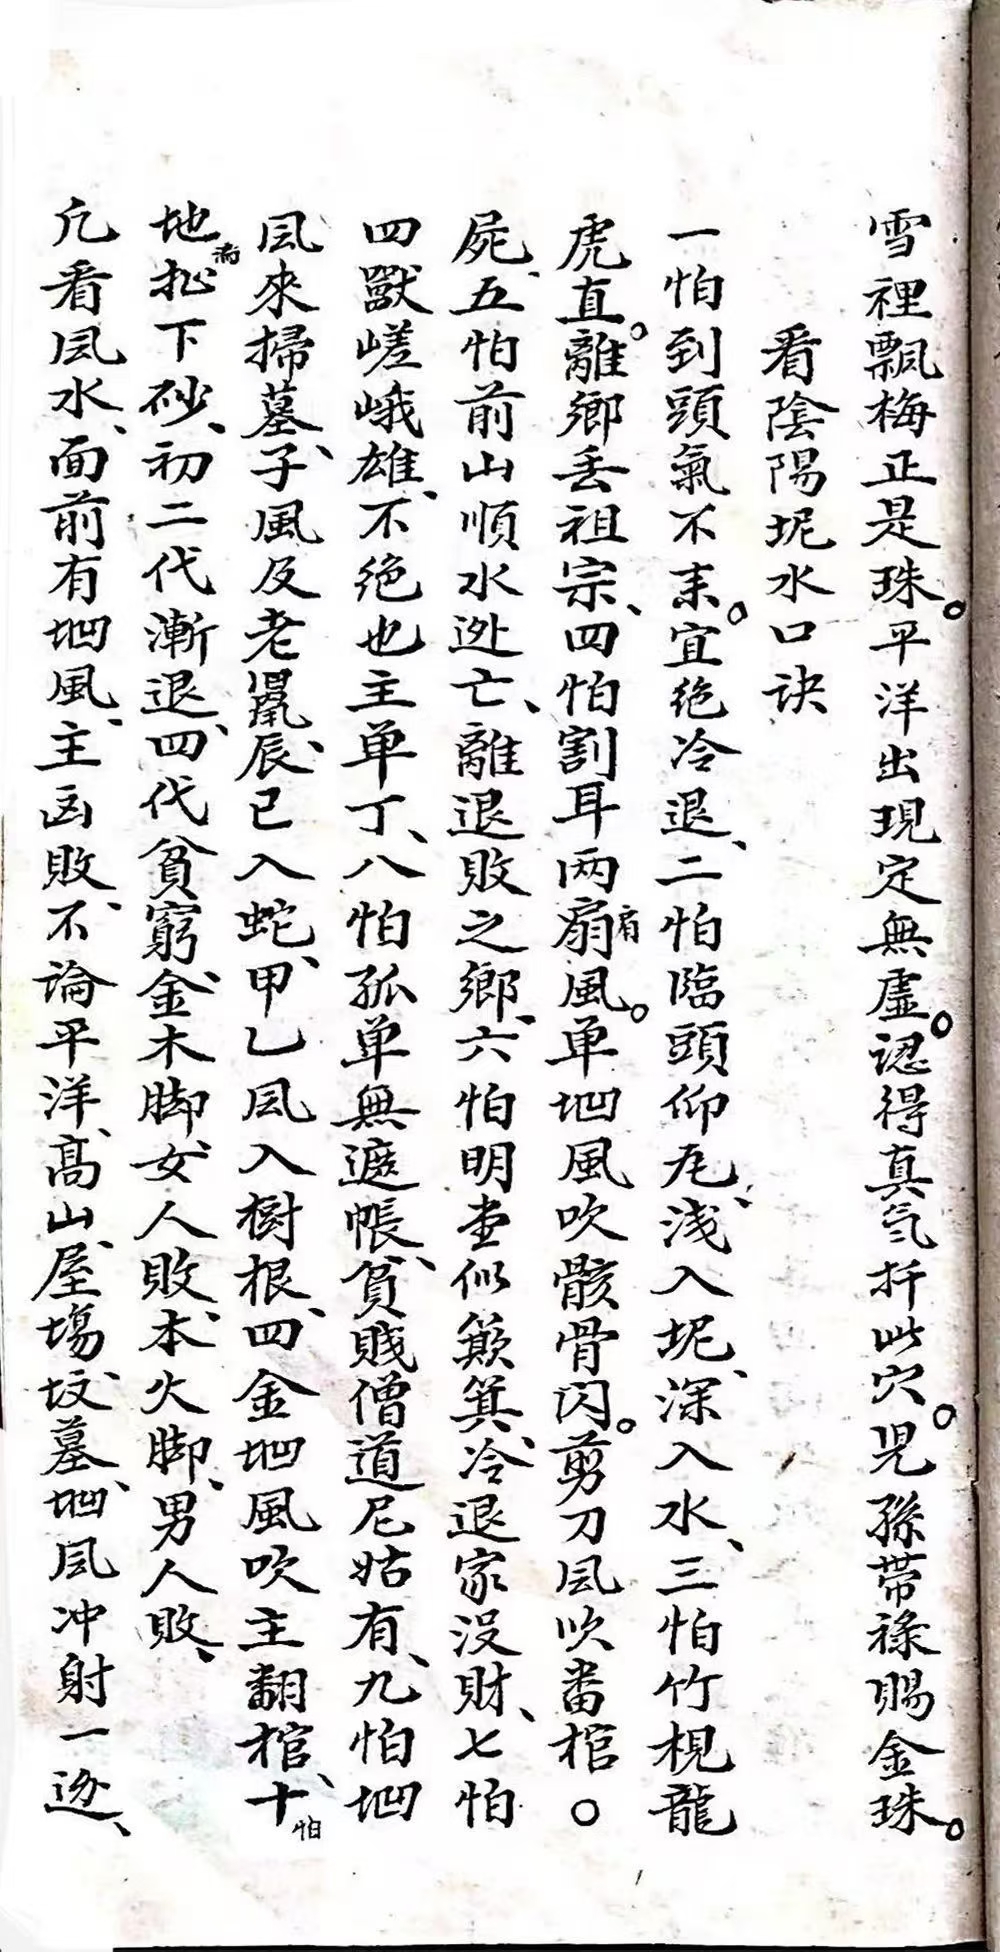 雪裡飄梅正是珠。平洋出現定無虛。認得真气扦此穴。児孫帶祿賜金珠。
看陰陽坭水口訣
一怕到頭氣不来。宜絕冷退、二怕臨頭仰瓦、浅入坭、深入水、三怕竹梘龍
虎直。離鄉丢祖宗、四怕割耳两扇肩風。单凹風吹骸骨閃。剪刀凨吹畨棺。
屍、五怕前山順水迯亡、離退敗之鄉、六怕明堂似簸箕、冷退家没財、七怕
四獸嵯峨雄、不絕也主单丁、八怕孤单無遮帳、貧賤僧道尼姑有、九怕凹
凨來掃墓、子風反老鼠、辰巳入蛇、甲乙凨入樹根、四金凹風吹主翻棺、十怕
地下砂、初二代漸退、四代貧窮、金木脚、女人敗、本火脚、男人敗、
凢看凨水、面前有凹風、主凶敗、不論平洋、高山、屋塲、坟墓、凹凨冲射一边、